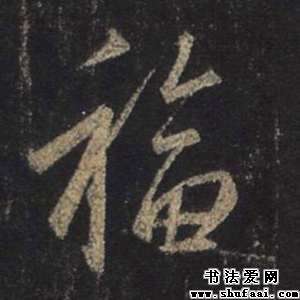 福
书法爱网
www.shufaai.com